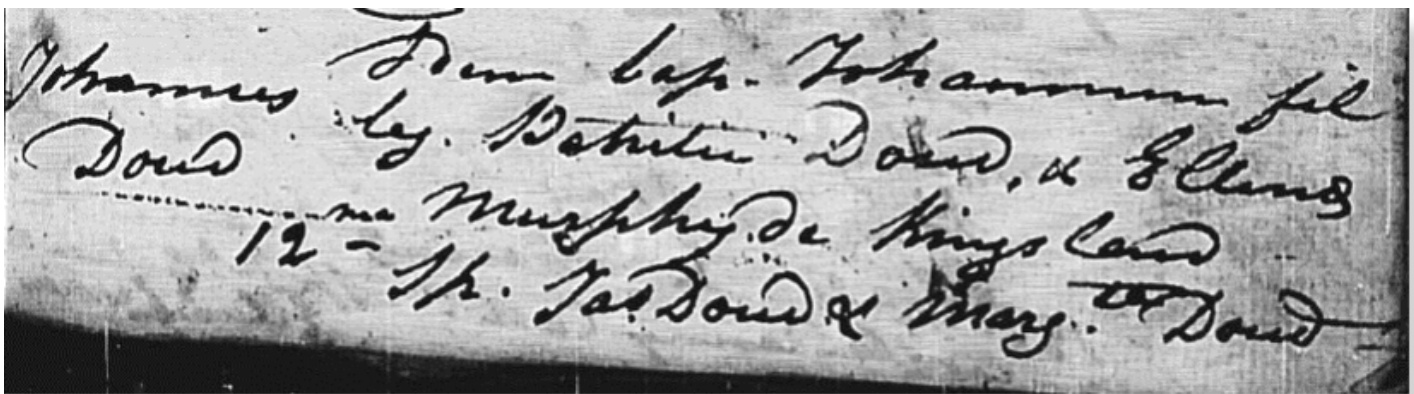 Johannes Idem bap. Johannem fil
Doud leg. Patritii Doud, & Ellena
12 ma Murphy de Kingsland
Sp. Jas Doud & Margtta Doud